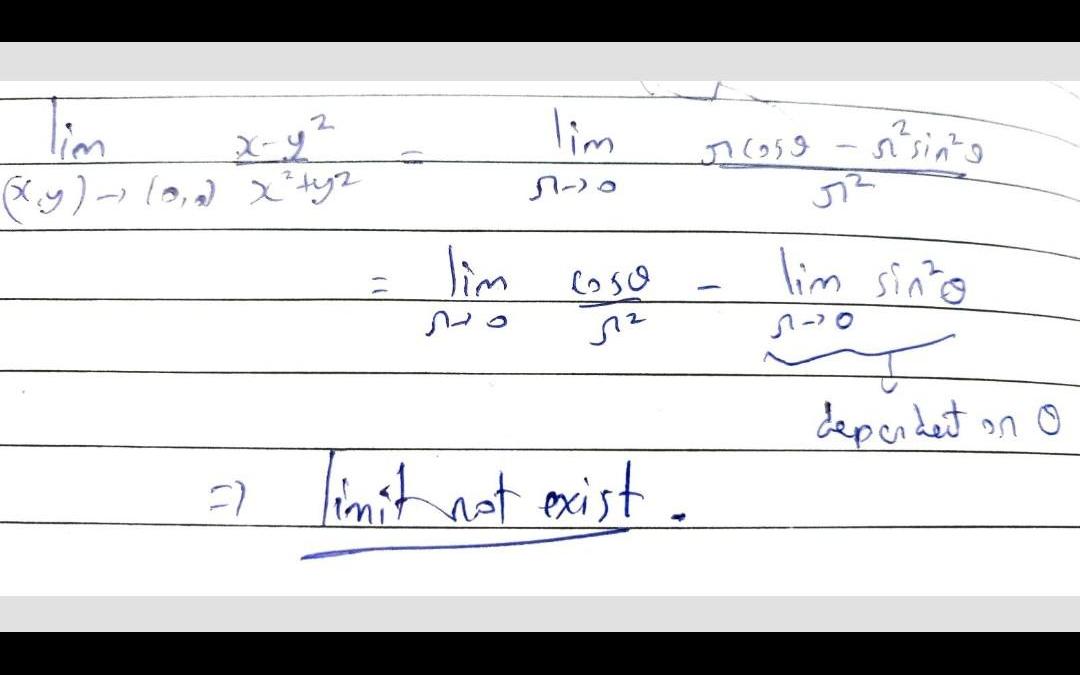 lim (x,y)→(0,0) x-y²/x²+y² = lim r→0 rcosθ - r²sin²θ/r²
= lim r→0 cosθ/r² - lim r→0 sin²θ
dependent on θ
⇒ limit not exist.